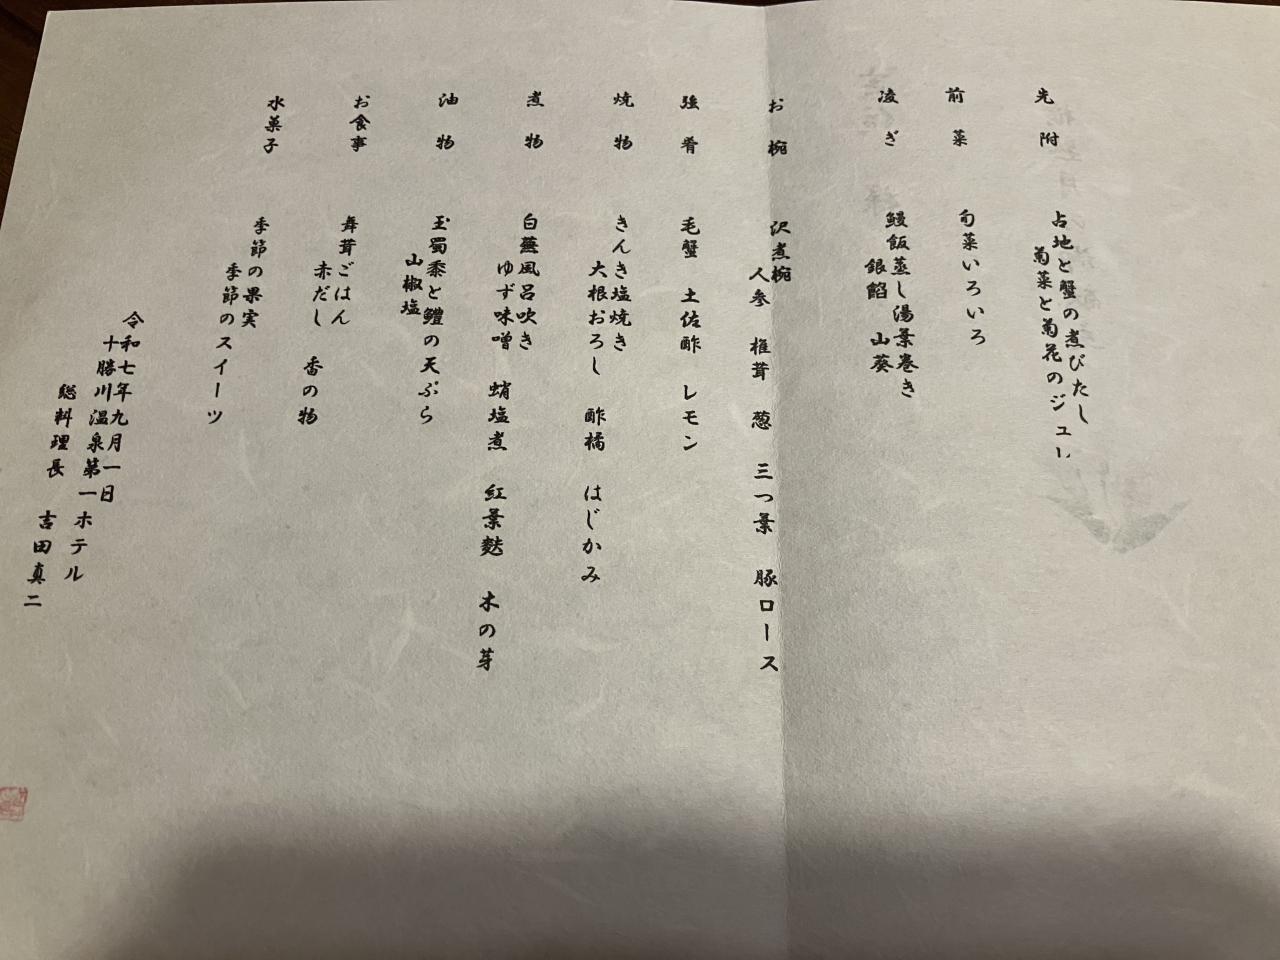 先附
占地と蟹の煮びたし
菊菜と菊花のジュレ
前菜
旬菜いろいろ
凌ぎ
鰻飯蒸し湯葉巻き
銀餡 山葵
お椀
沢煮椀
人参 椎茸 葱 三つ葉 豚ロース
強肴
毛蟹 土佐酢 レモン
焼物
きんき塩焼き
大根おろし 酢橘 はじかみ
煮物
白蕪風呂吹き
ゆず味噌 蛸塩煮 紅葉麩 木の芽
油物
玉蜀黍と鱧の天ぷら
山椒塩
お食事
舞茸ごはん
赤だし 香の物
水菓子
季節の果実
季節のスイーツ
令和七年九月一日
十勝川温泉第一ホテル
総料理長 吉田真二